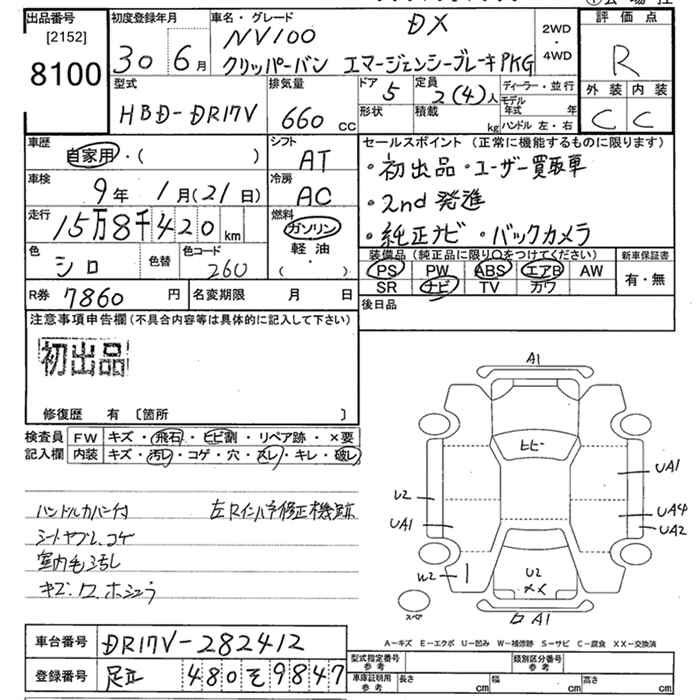 出品番号
[2152]
8100
初度登録年月
30 6月
車名・グレード
NV100 DX
クリッパーバン エマージェンシーブレーキPKG
2WD
・
4WD
評価点
R
外装 内装
C C
型式
HBD-DR17V
排気量
660 cc
ドア 5
定員 2(4)人
形状
積載 kg
ディーラー・並行
モデル年式 年
ハンドル 左・右
車歴
自家用・( )
シフト
AT
車検
9年 1月(21日)
冷房
AC
走行
15万8千420km
燃料
ガソリン
軽・油
( ・ )
色
シロ
色替
色コード
260
R券 7860円
名変期限 月 日
セールスポイント (正常に機能するものに限ります)
・初出品・ユーザー買取車
・2nd発進
・純正ナビ・バックカメラ
装備品(純正品に限り○をつけてください)
PS PW ABS エアB AW
SR ナビ TV カワ
新車保証書
有・無
後日品
注意事項申告欄(不具合内容等は具体的に記入して下さい)
初出品
修復歴 有〔箇所 〕
検査員記入欄
FW キズ・飛石・ヒビ割・リペア跡・×要
内装 キズ・汚レ・コゲ・穴・スレ・キレ・破レ
ハンドルカバー付
シートヤブレ、コゲ
室内毛汚し
A1
ヒビ
UA1
U2
UA1
UA4
UA2
W2
U2
XX
スペア
A1
A-キズ E-エクボ U-凹み W-補修跡 S-サビ C-腐食 XX-交換済
車台番号 DR17V-282412
登録番号 足立 480 そ 9847
型式指定番号
参考
類別区分番号
参考
車庫証明用
参考
長さ cm 幅 cm 高さ cm